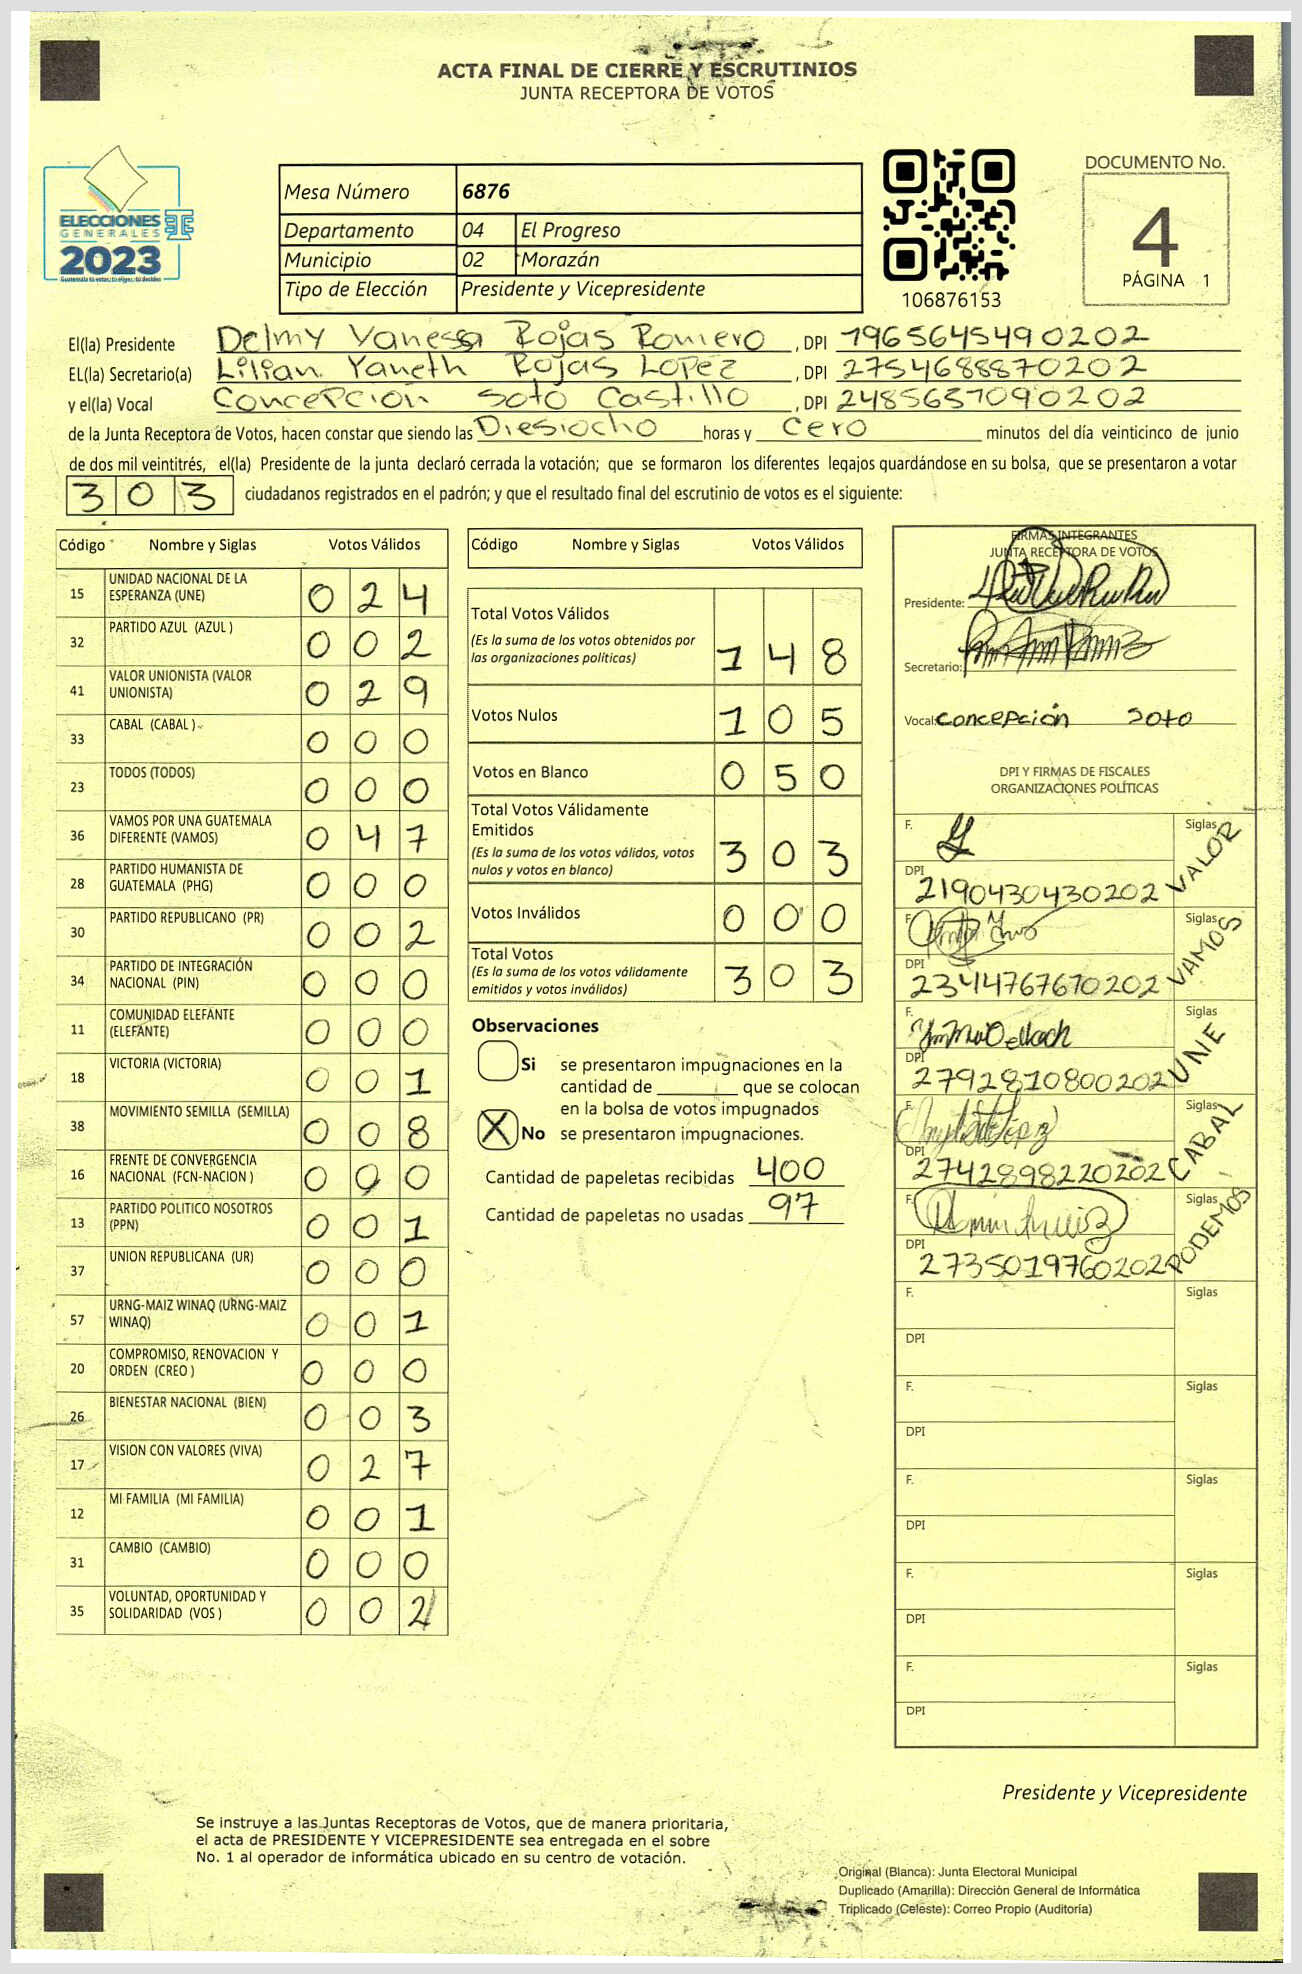 ACTA FINAL DE CIERRE Y ESCRUTINIOS
JUNTA RECEPTORA DE VOTOS
ELECCIONES
GENERALES
2023
Guatemala tú votas, tú eliges, tú decides
Mesa Número 6876
Departamento 04 El Progreso
Municipio 02 Morazán
Tipo de Elección Presidente y Vicepresidente
106876153
DOCUMENTO No.
4
PÁGINA 1
El(la) Presidente Delmy Vanessa Rojas Romero, DPI 1965645490202
EL(la) Secretario(a) Lilian Yaneth Rojas Lopez, DPI 2754688870202
y el(la) Vocal Concepción Soto Castillo, DPI 2485637090202
de la Junta Receptora de Votos, hacen constar que siendo las Diesiocho horas y cero minutos del día veinticinco de junio
de dos mil veintitrés, el(la) Presidente de la junta declaró cerrada la votación; que se formaron los diferentes legajos guardándose en su bolsa, que se presentaron a votar
303 ciudadanos registrados en el padrón; y que el resultado final del escrutinio de votos es el siguiente:
Código Nombre y Siglas Votos Válidos
15 UNIDAD NACIONAL DE LA ESPERANZA (UNE) 0 2 4
32 PARTIDO AZUL (AZUL ) 0 0 2
41 VALOR UNIONISTA (VALOR UNIONISTA) 0 2 9
33 CABAL (CABAL ) 0 0 0
23 TODOS (TODOS) 0 0 0
36 VAMOS POR UNA GUATEMALA DIFERENTE (VAMOS) 0 4 7
28 PARTIDO HUMANISTA DE GUATEMALA (PHG) 0 0 0
30 PARTIDO REPUBLICANO (PR) 0 0 2
34 PARTIDO DE INTEGRACIÓN NACIONAL (PIN) 0 0 0
11 COMUNIDAD ELEFANTE (ELEFANTE) 0 0 0
18 VICTORIA (VICTORIA) 0 0 1
38 MOVIMIENTO SEMILLA (SEMILLA) 0 0 8
16 FRENTE DE CONVERGENCIA NACIONAL (FCN-NACION ) 0 0 0
13 PARTIDO POLITICO NOSOTROS (PPN) 0 0 1
37 UNION REPUBLICANA (UR) 0 0 0
57 URNG-MAIZ WINAQ (URNG-MAIZ WINAQ) 0 0 1
20 COMPROMISO, RENOVACION Y ORDEN (CREO ) 0 0 0
26 BIENESTAR NACIONAL (BIEN) 0 0 3
17 VISION CON VALORES (VIVA) 0 2 7
12 MI FAMILIA (MI FAMILIA) 0 0 1
31 CAMBIO (CAMBIO) 0 0 0
35 VOLUNTAD, OPORTUNIDAD Y SOLIDARIDAD (VOS ) 0 0 2
Código Nombre y Siglas Votos Válidos
Total Votos Válidos
(Es la suma de los votos obtenidos por las organizaciones políticas) 1 4 8
Votos Nulos 1 0 5
Votos en Blanco 0 5 0
Total Votos Válidamente Emitidos
(Es la suma de los votos válidos, votos nulos y votos en blanco) 3 0 3
Votos Inválidos 0 0 0
Total Votos
(Es la suma de los votos válidamente emitidos y votos inválidos) 3 0 3
Observaciones
Si se presentaron impugnaciones en la
cantidad de ________ que se colocan
en la bolsa de votos impugnados
X No se presentaron impugnaciones.
Cantidad de papeletas recibidas 400
Cantidad de papeletas no usadas 97
FIRMAS INTEGRANTES
JUNTA RECEPTORA DE VOTOS
Presidente:
Secretario:
Vocal: Concepción Soto
DPI Y FIRMAS DE FISCALES
ORGANIZACIONES POLÍTICAS
F. Siglas VALOR
DPI 2190430430202
F. Siglas VAMOS
DPI 2344767670202
F. Siglas UNE
DPI 2792810800202
F. Siglas CABAL
DPI 2742898220202
F. Siglas PODEMOS
DPI 2735019760202
F. Siglas
DPI
F. Siglas
DPI
F. Siglas
DPI
F. Siglas
DPI
F. Siglas
DPI
Presidente y Vicepresidente
Se instruye a las Juntas Receptoras de Votos, que de manera prioritaria,
el acta de PRESIDENTE Y VICEPRESIDENTE sea entregada en el sobre
No. 1 al operador de informática ubicado en su centro de votación.
Original (Blanca): Junta Electoral Municipal
Duplicado (Amarilla): Dirección General de Informática
Triplicado (Celeste): Correo Propio (Auditoría)